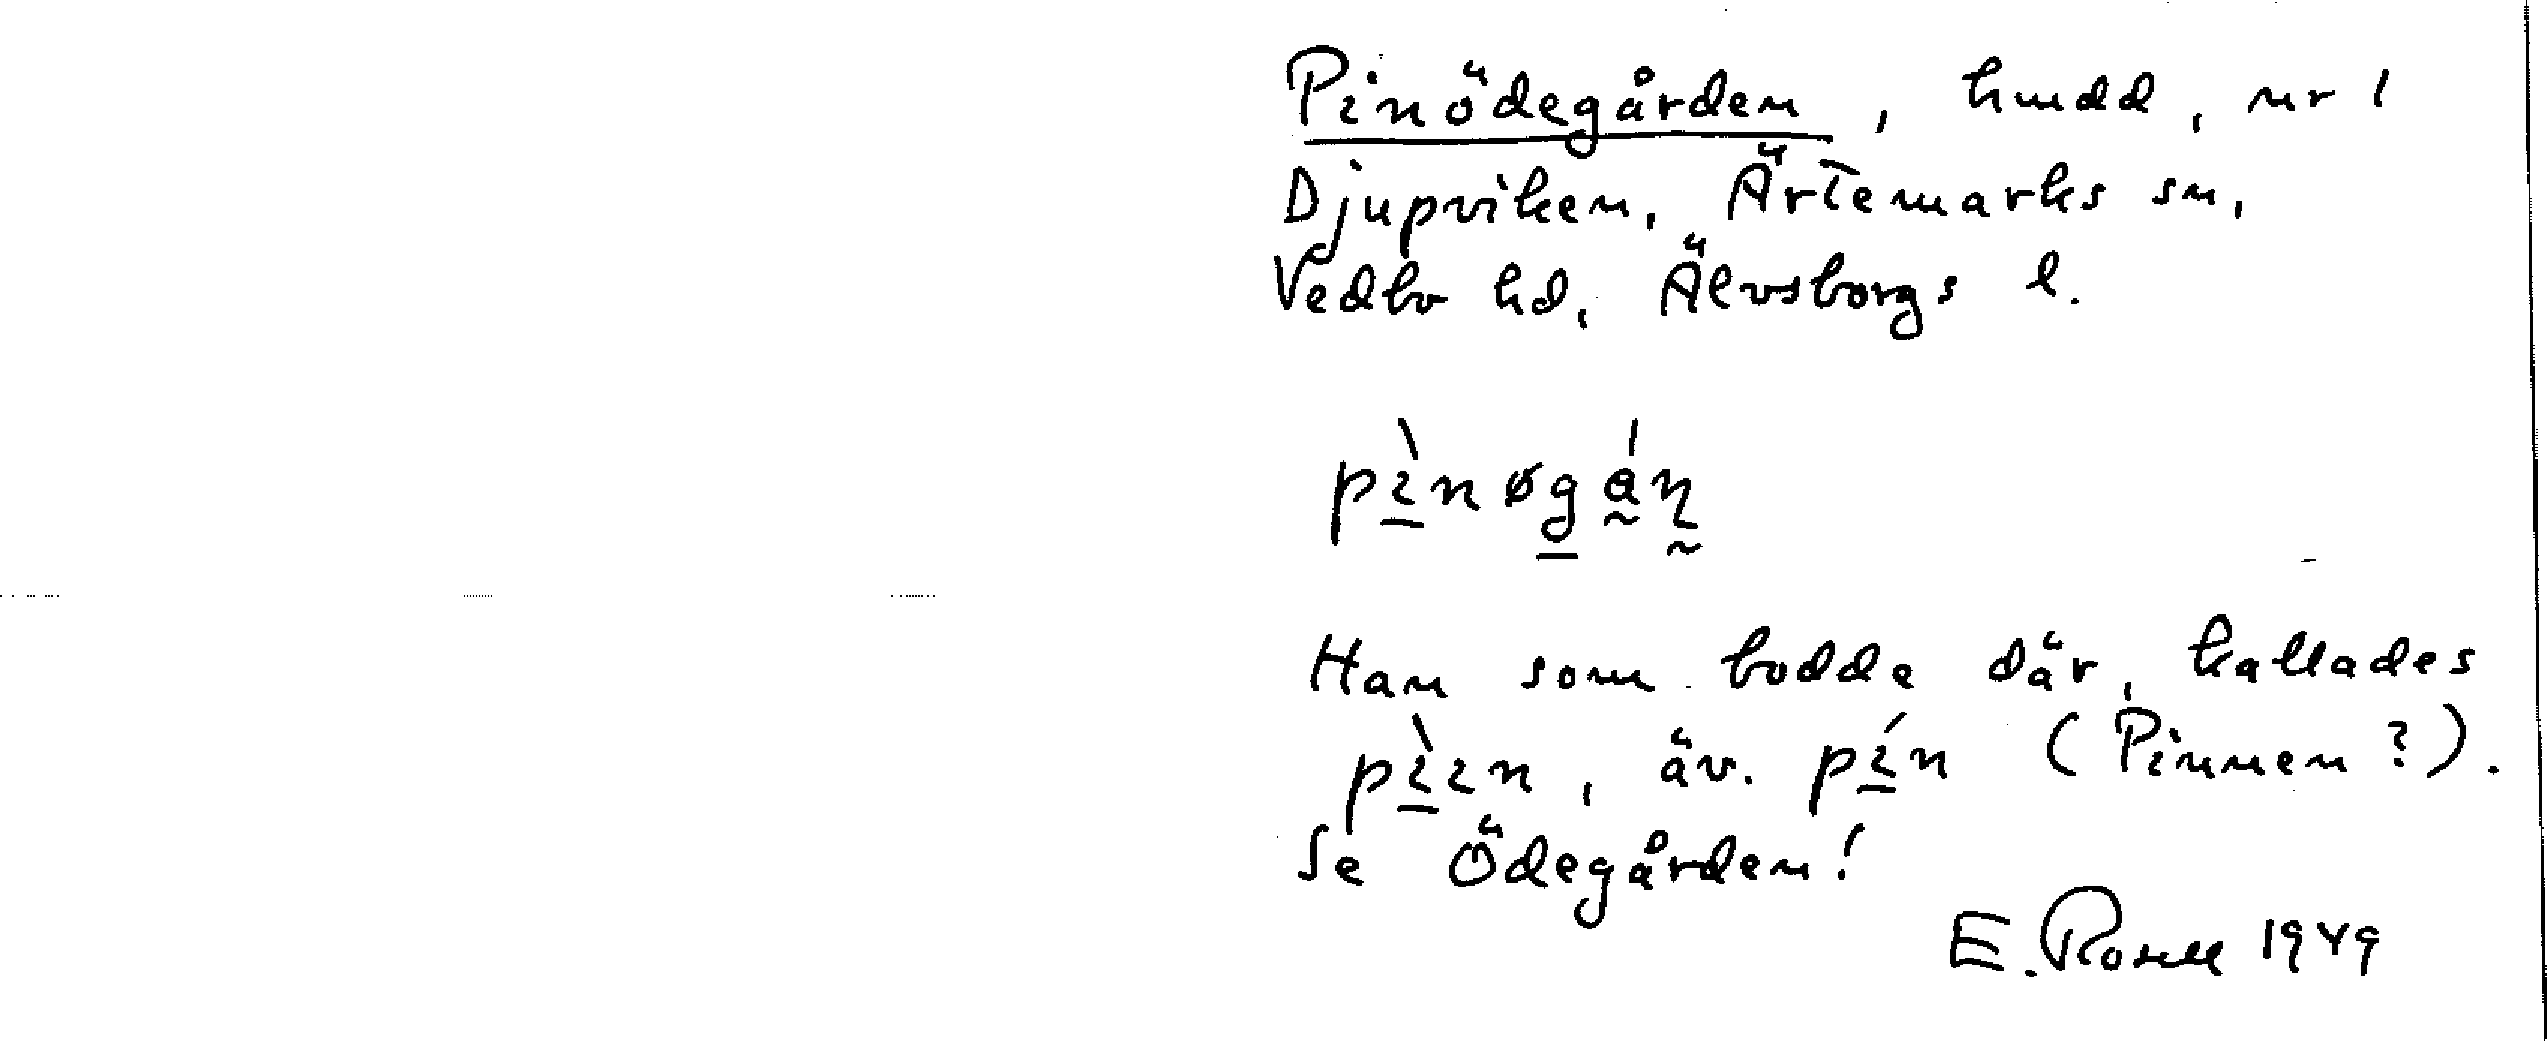 Pinödegården, hmdd, nr 1
Djupviken, Ärtemarks sn,
Vedbo hd, Älvsborgs l.
pı̱̀nøg̱á̰ṇ̰
Han som bodde där, kallades
pı̱̀ın, äv. pı̱́n (Pinnen?).
Se Ödegården!
E. Rosell 1949